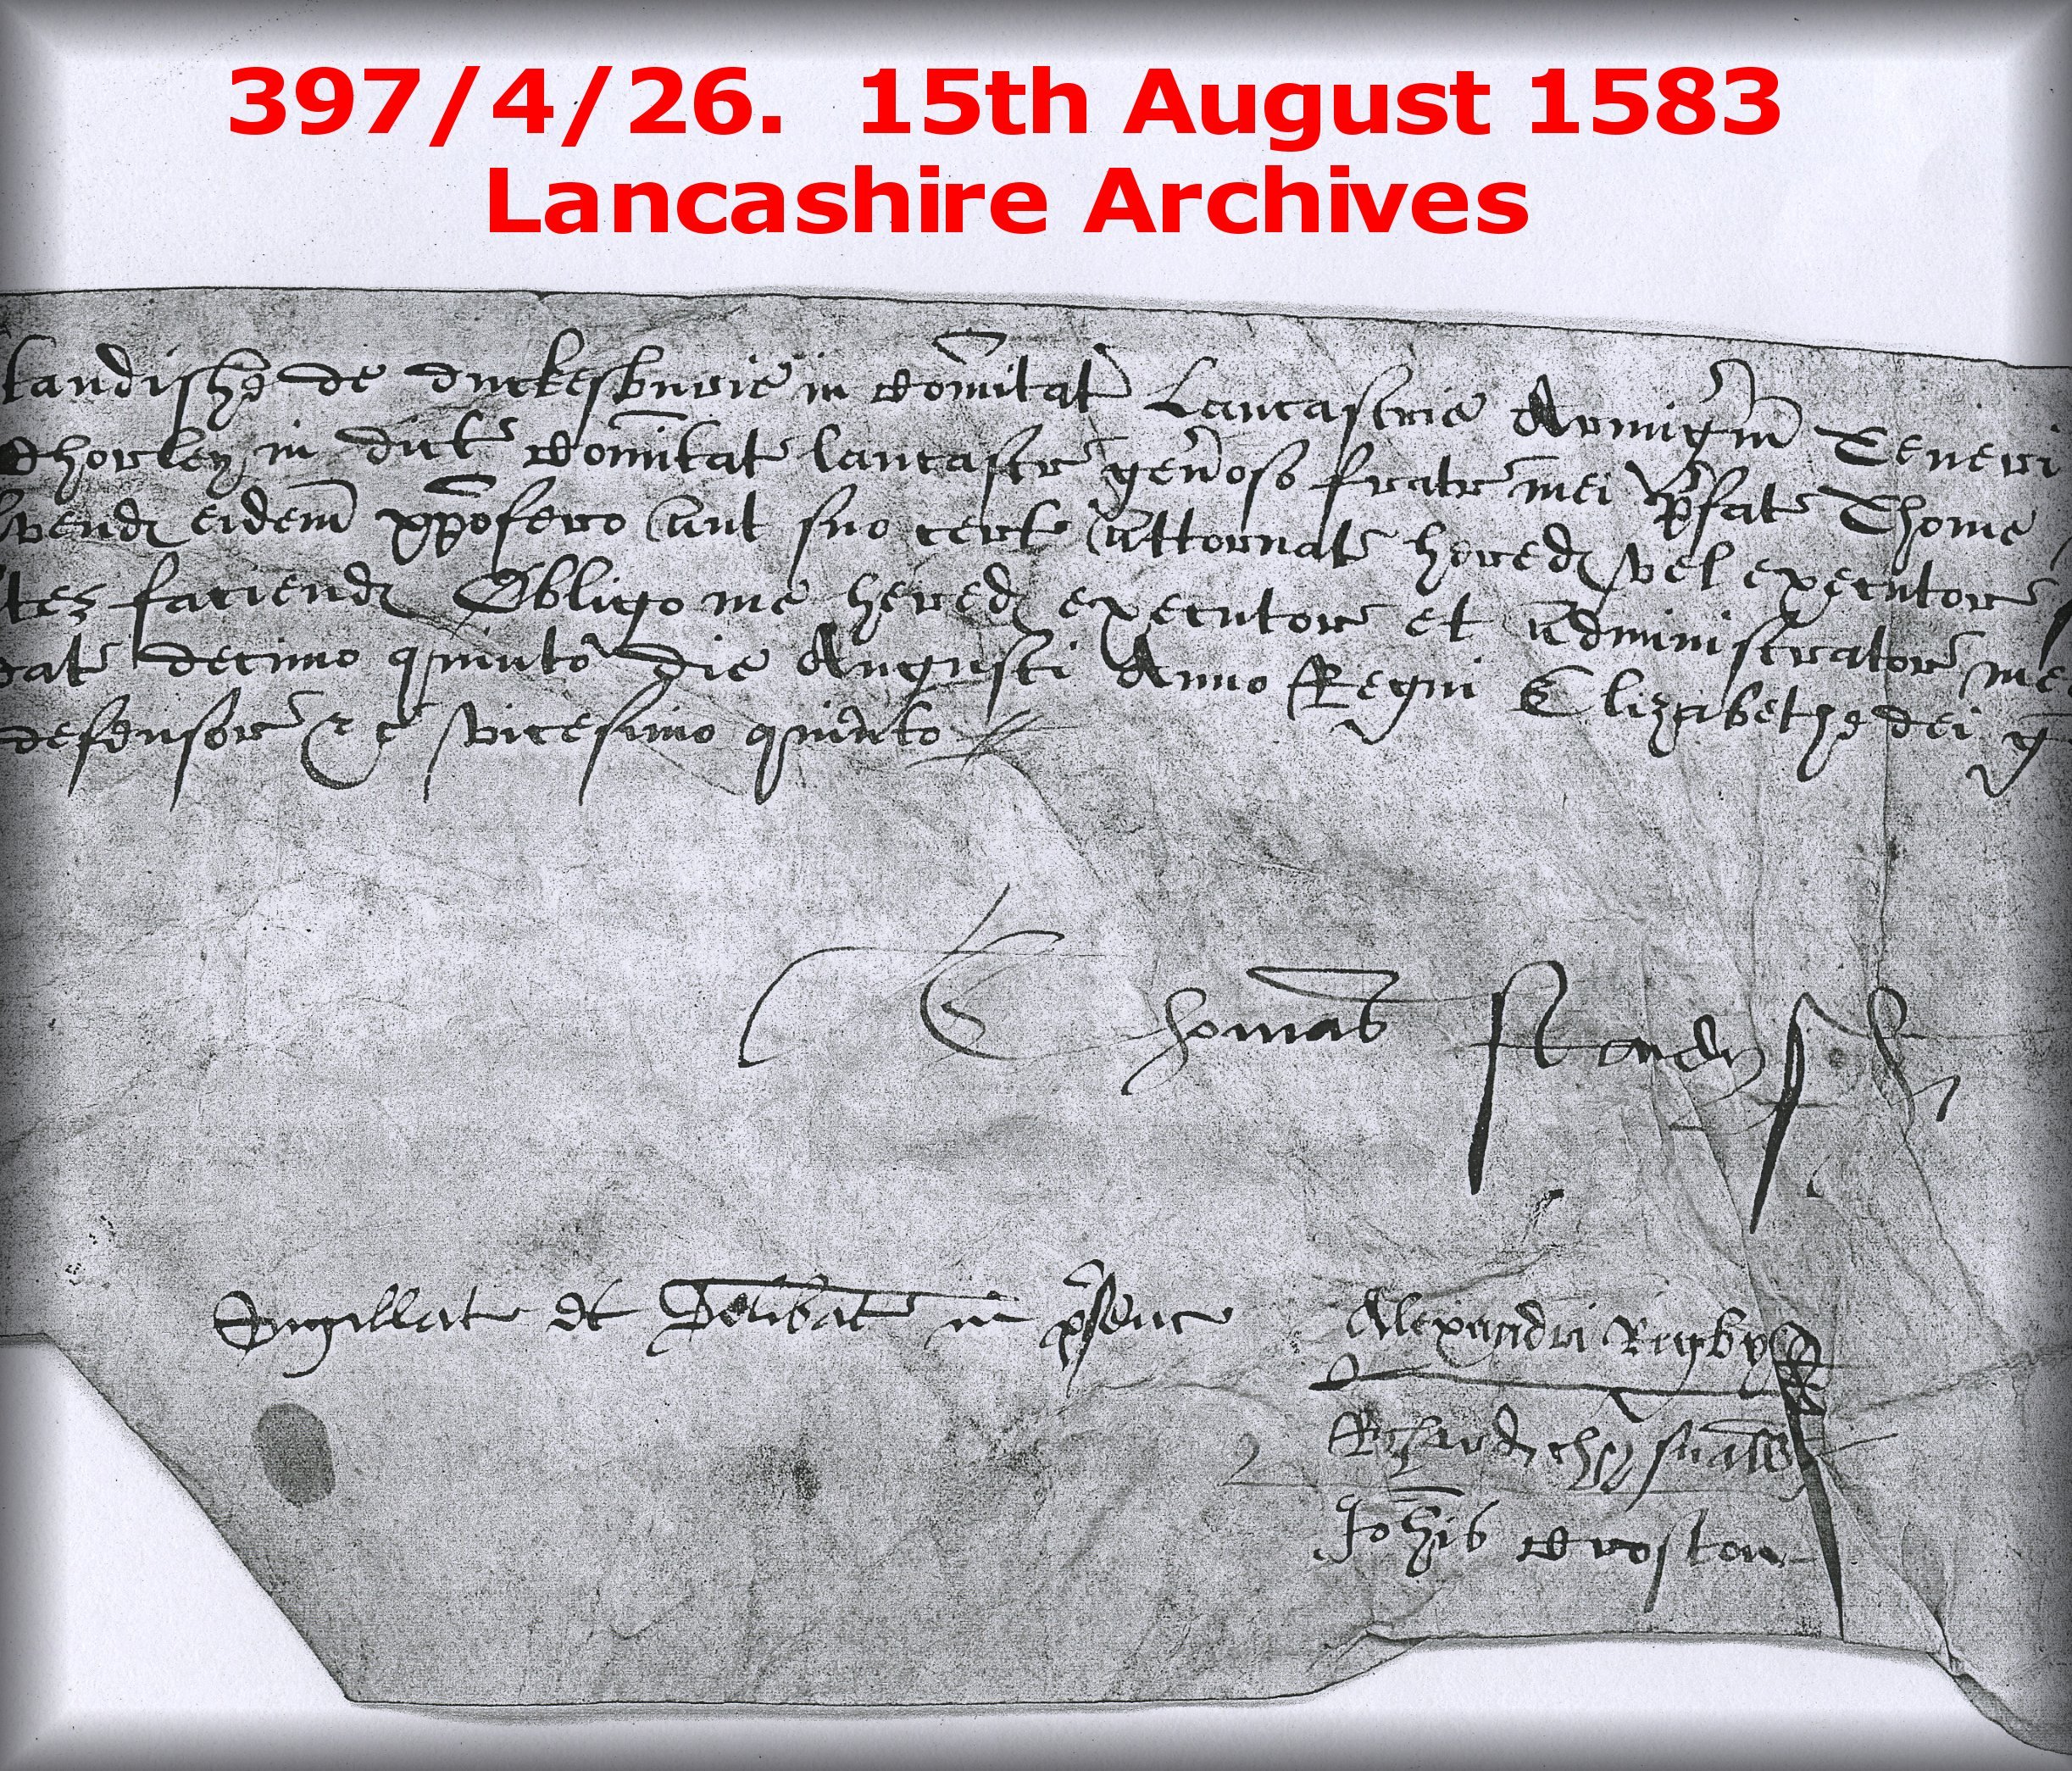 397/4/26. 15th August 1583
Lancashire Archives
tandishe de duckesburie in Comitat Lancastrie Armigm Teneri
Chorley in dict Comitat lancastr genoso fratr mei pfat Thome
vend eidem xpofero aut suo cert attornat hered vel executor
tes faciend Obligo me hered executor et administrator me
dat decimo quinto die Augusti Anno Regni Elizabethe dei g
defensor &c vicesimo quinto
Thomas Standysh
Sigillat et delibat in psenc
Alexandri Rigbye
Johis Croston